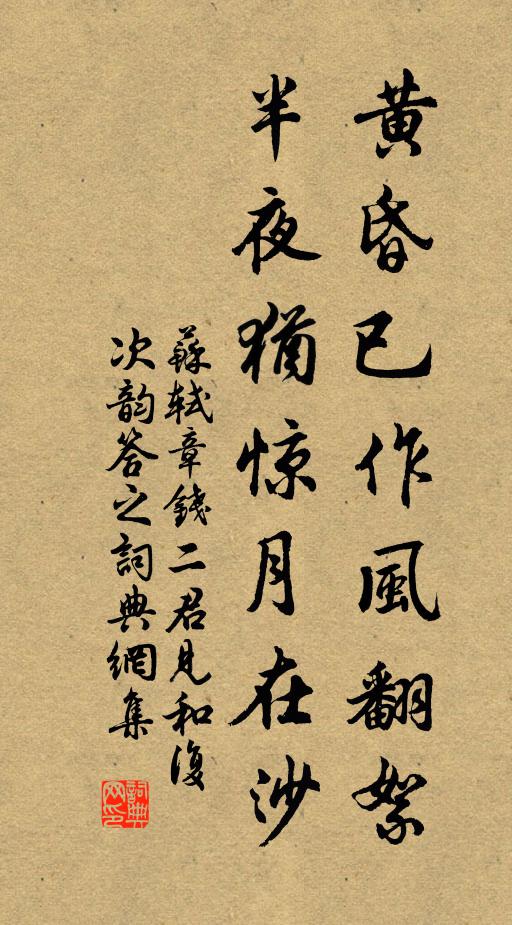 黄昏已作風翻絮
半夜猶惊月在沙
蘇軾章錢二君見和復
次韵答之詞典網集
詞典
网印